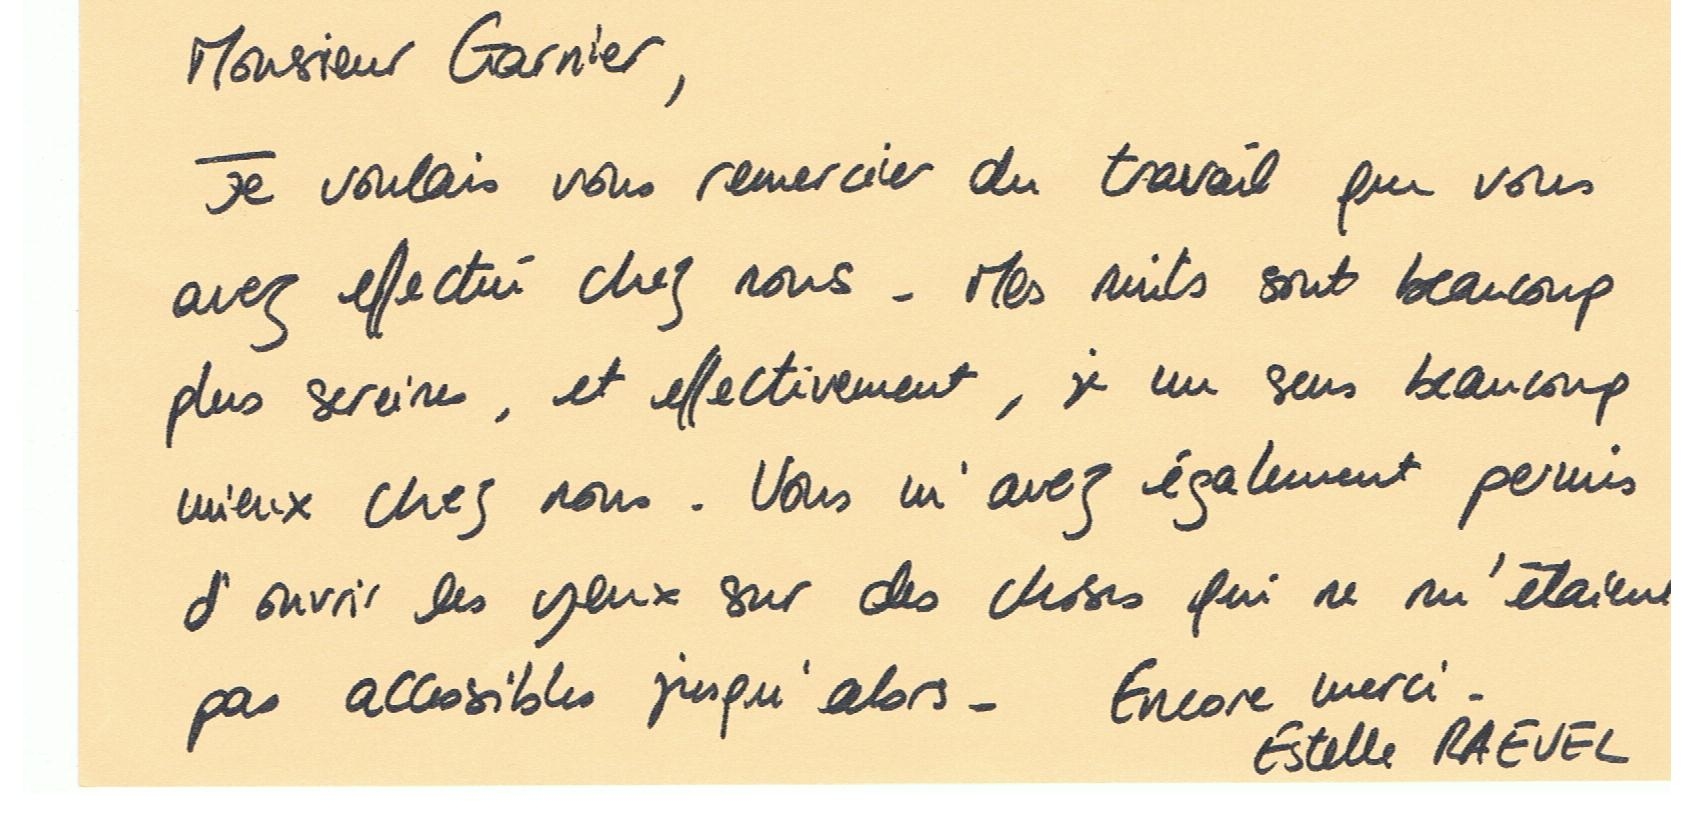 Monsieur Garnier,
Je voulais vous remercier du travail que vous
avez effectué chez nous. Mes nuits sont beaucoup
plus sereines, et effectivement, je me sens beaucoup
mieux chez nous. Vous m'avez également permis
d'ouvrir les yeux sur des choses qui ne m'étaient
pas accessibles jusqu'alors. Encore merci.
Estelle RAEVEL